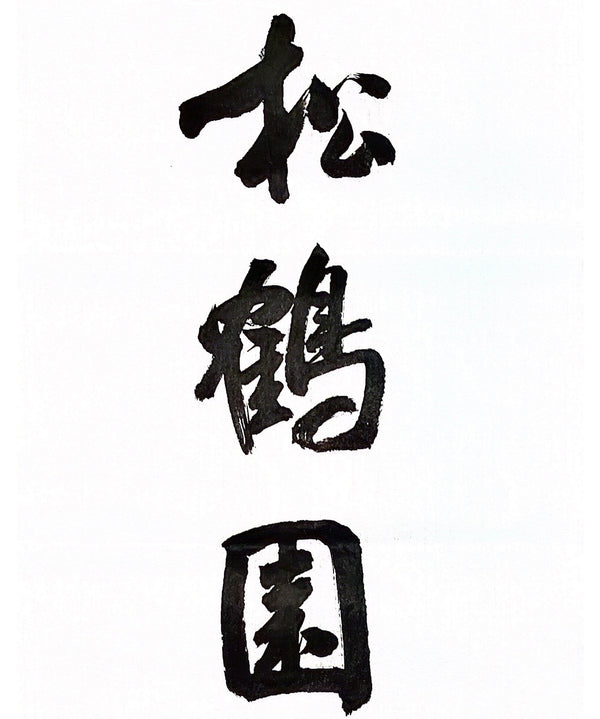 松鶴園